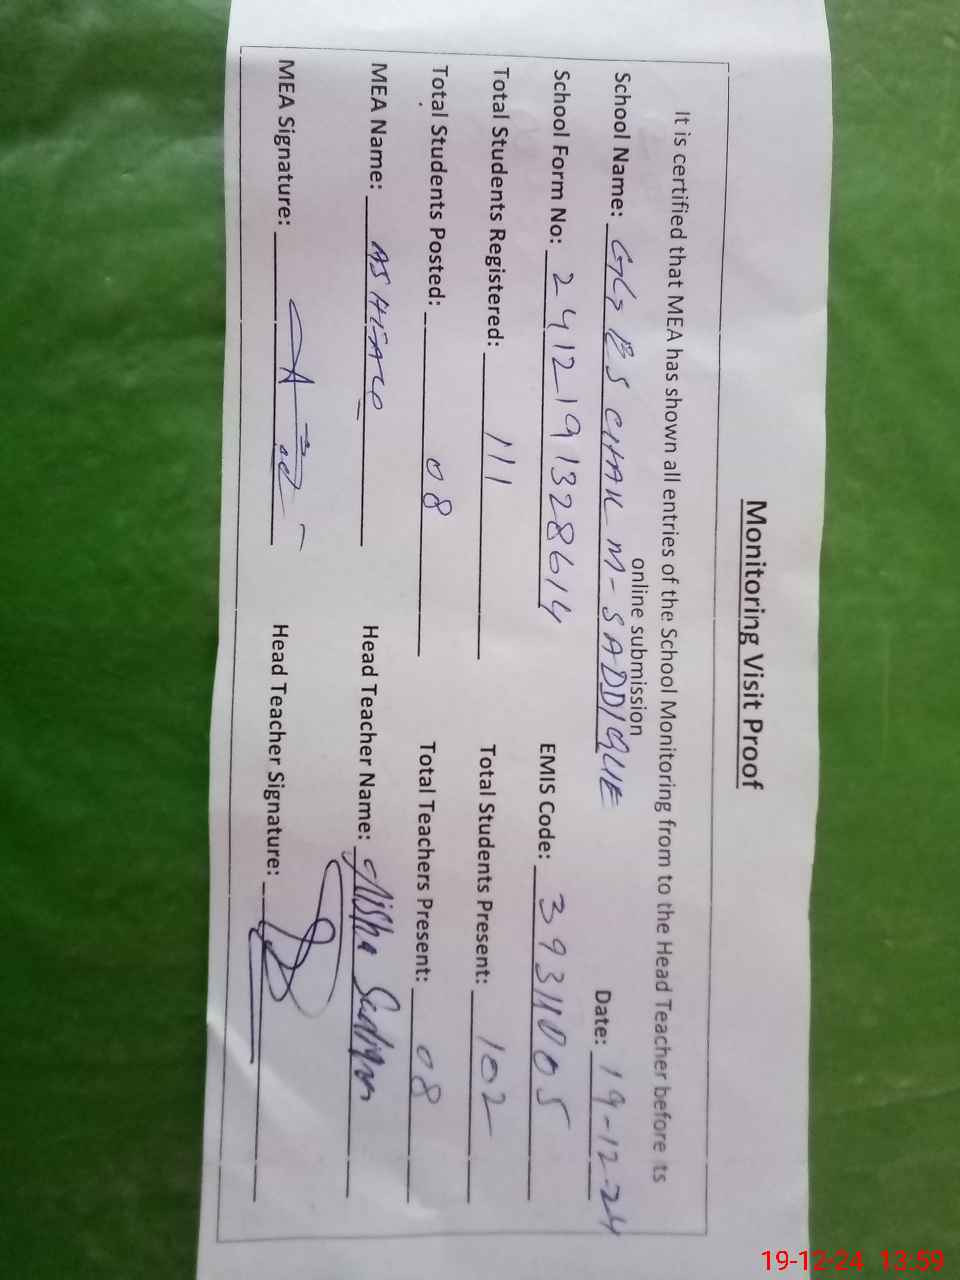 Monitoring Visit Proof
It is certified that MEA has shown all entries of the School Monitoring from to the Head Teacher before its
online submission
School Name: GGES CHAK M-SADDIQUE Date: 19-12-24
School Form No: 2412191328614 EMIS Code: 39311005
Total Students Registered: 111 Total Students Present: 102
Total Students Posted: 08 Total Teachers Present: 08
MEA Name: Head Teacher Name: Aisha
MEA Signature: Head Teacher Signature:
19-12-24 13:59